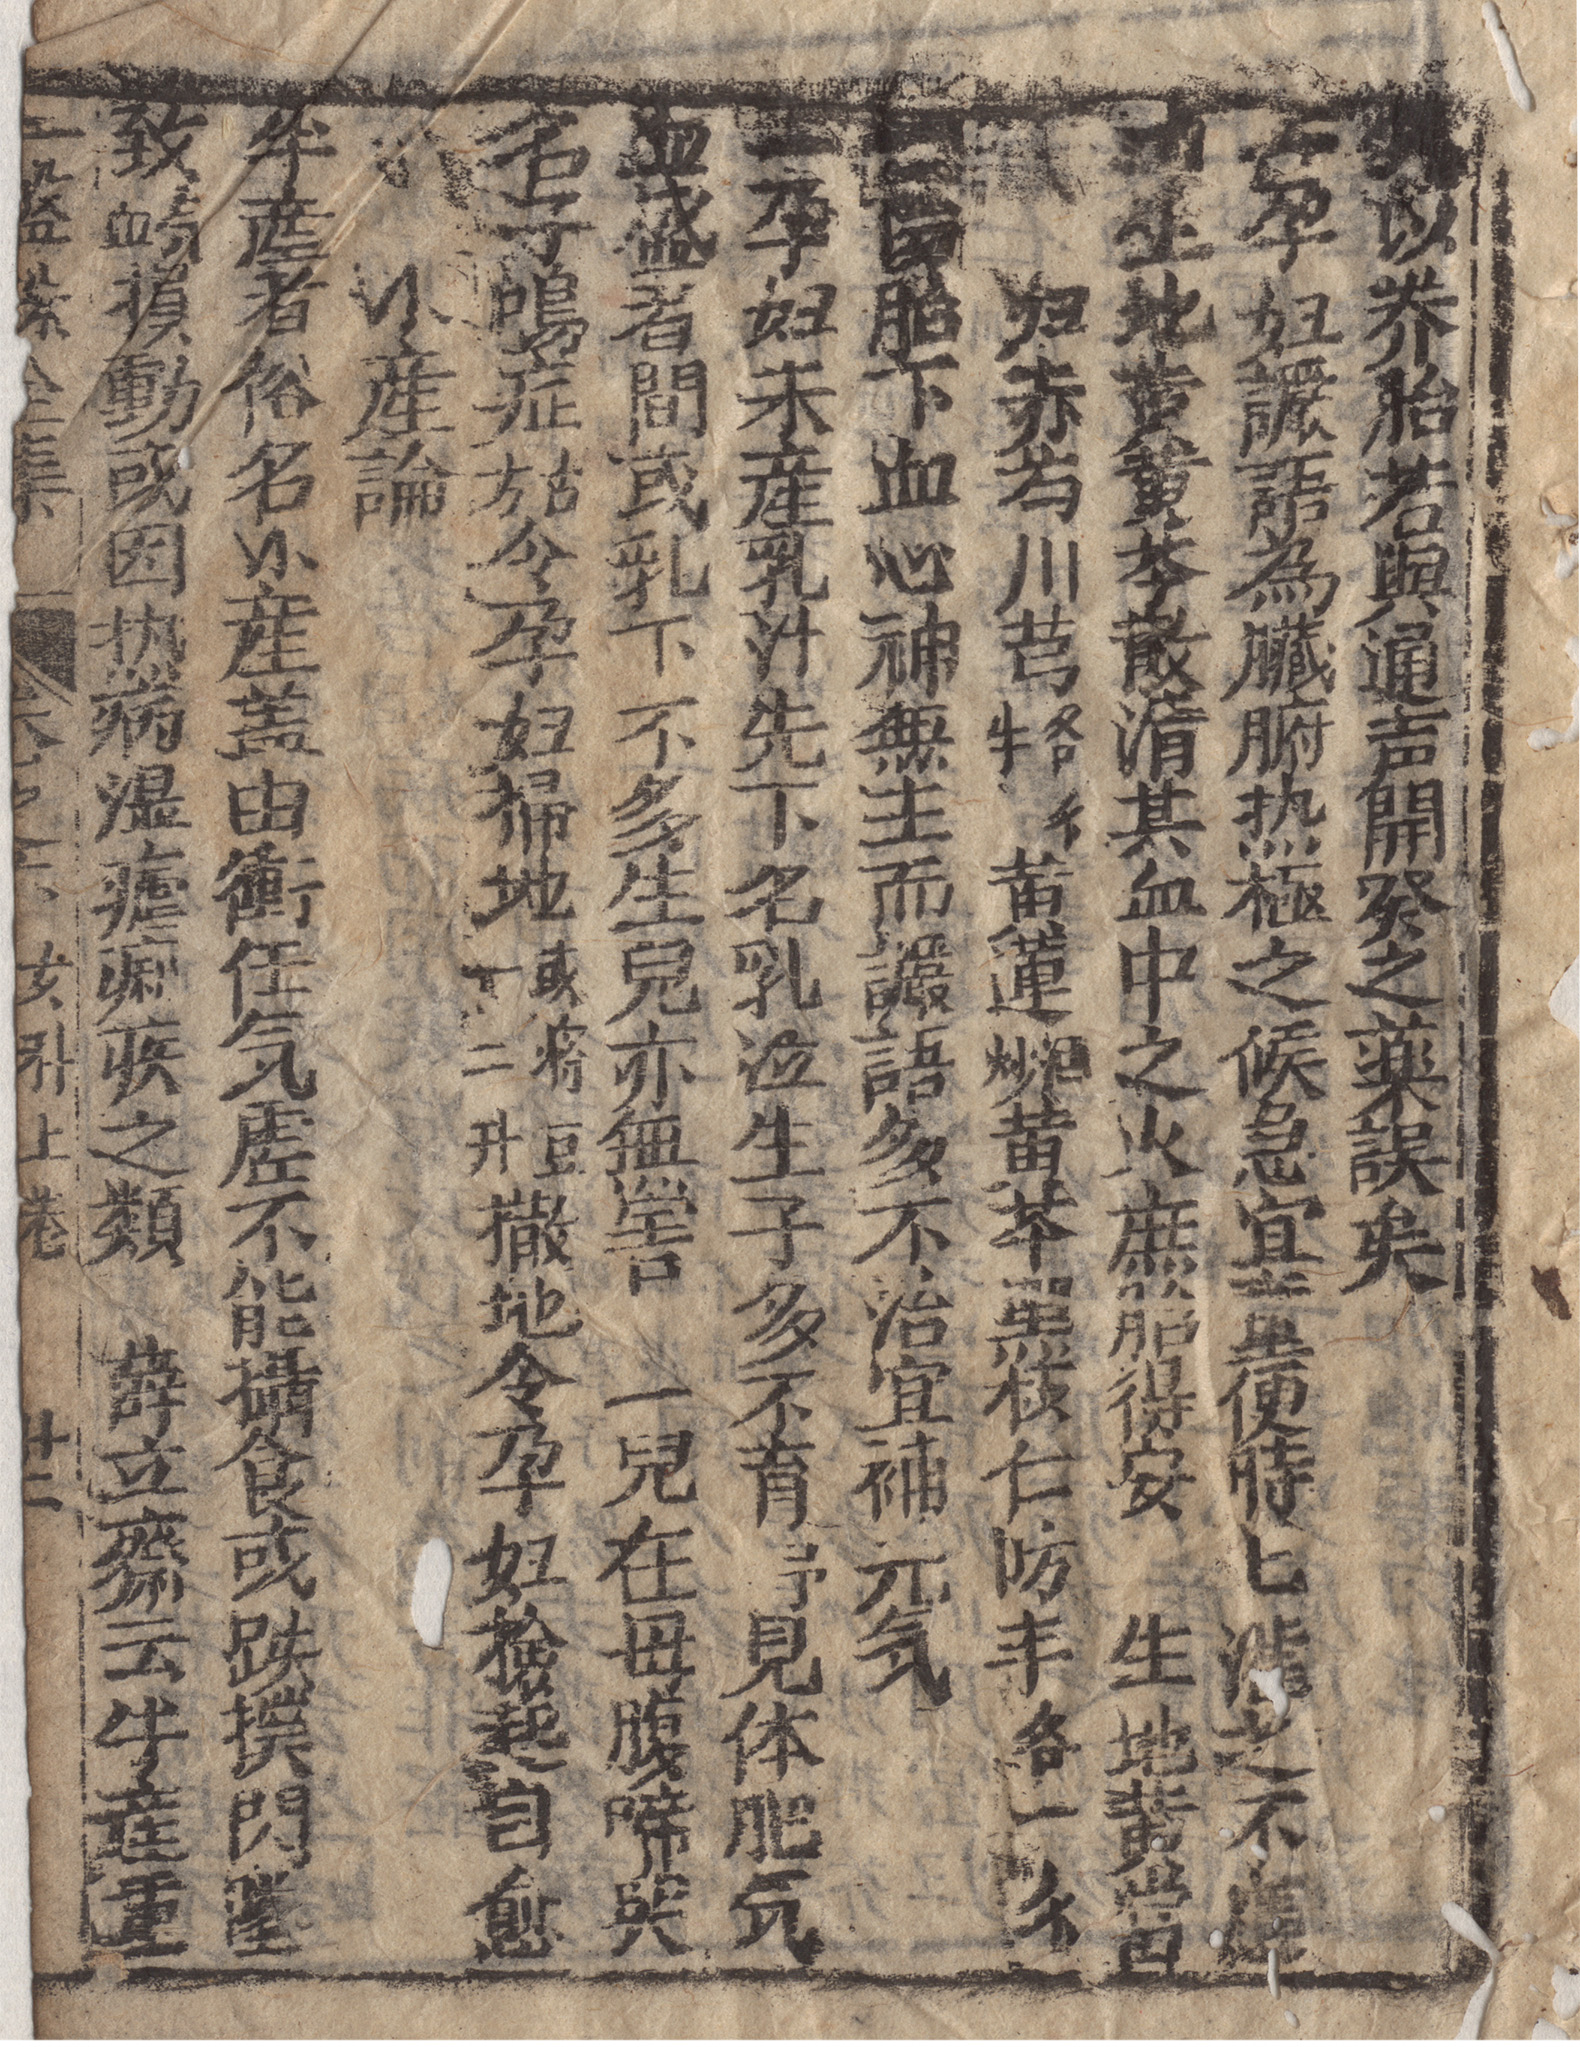 以养胎若與通声開發之薬誤矣
一孕妇讝語為臟腑热極之候急宜童便時匕灌之不
生地黄黄芩散清其血中之火庶胎得安　生地黄當
归赤芍川芎各牛𠆧黄蓮炒黄芩黑枝仁防丰各一𠆧
一因胎下血心神無主而讝語多不治宜補元気
一孕妇未産乳汁先下名乳泣生子多不育予見体肥気
血盛者間或乳下不多生兒亦無害　一兒在母腹啼哭
名子鳴症方古令孕妇掃地或將豆一二升撒地令孕妇撿起自愈
小産論
半産者俗名小産蓋由衝任気虚不能攝食或跌撲閃墜
致気血損動或因热病湿瘧痢疾之類　薛立齋云半産重
集　女科上卷　廿二